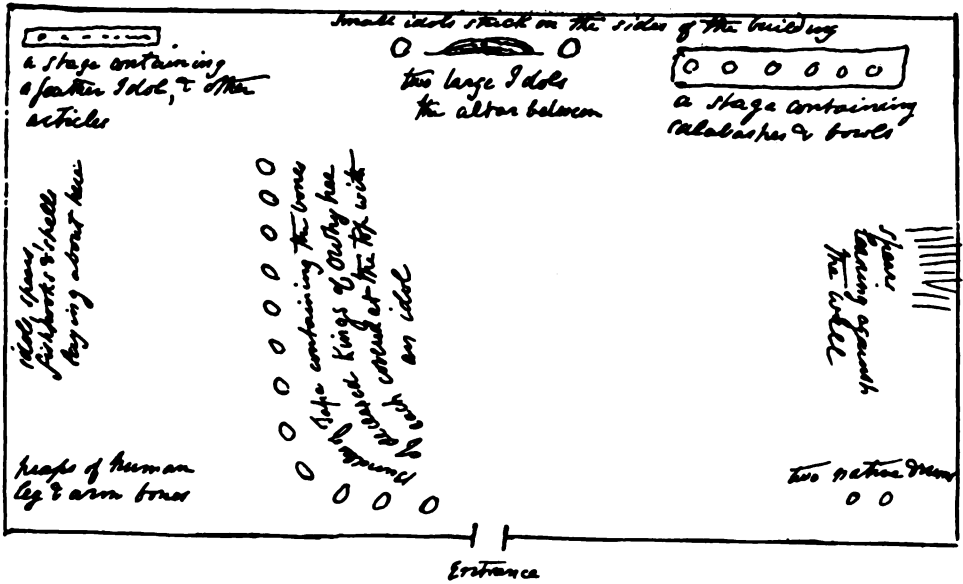 Small idols stuck on the sides of the building
a stage containing
a feather Idol, & other
articles
two large Idols
the altar between
a stage containing
calabashes & bowls
idols, spears,
fishhooks & shells
laying about here
Tapa containing the bones
of deceased Kings of Owhyhee
each covered at the top with
an idol
spears
leaning against
the wall
heaps of human
leg & arm bones
two native drums
Entrance